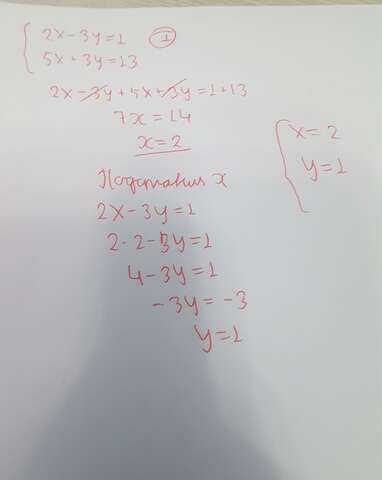 2x-3y=1 ①
5x+3y=13
2x-3y+5x+3y=1+13
7x=14
x=2
Подставил x
2x-3y=1
2·2-3y=1
4-3y=1
-3y=-3
y=1
x=2
y=1